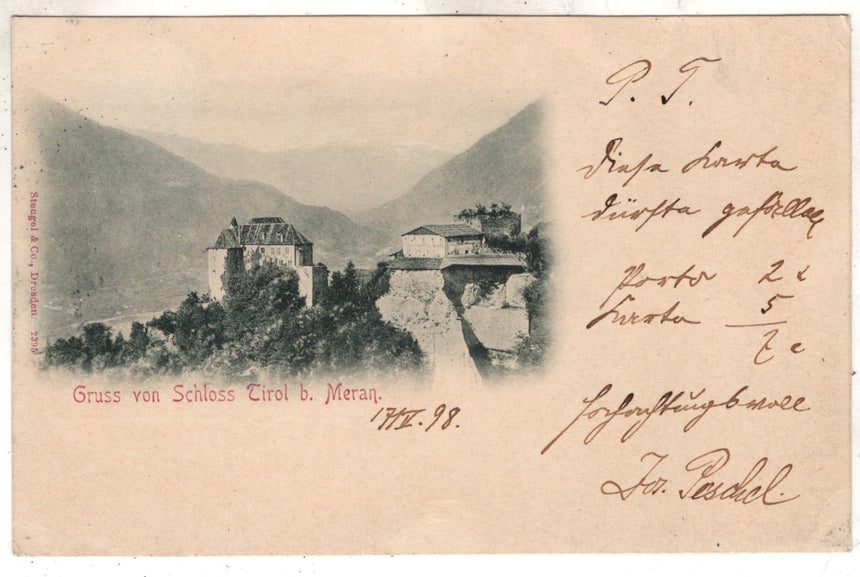 P. T.
Diese Karte
dürfte gefallen
Porto 2
Karte 5
7
hochachtungsvoll
Jos. Peschel.
Stengel & Co., Dresden. 2395
Gruss von Schloss Tirol b. Meran.
17/V. 98.